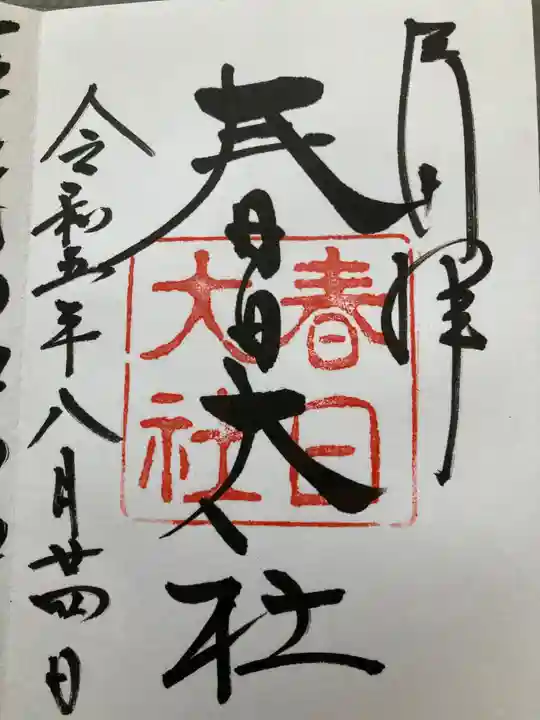 春日大社
春日
大社
令和五年八月廿四日